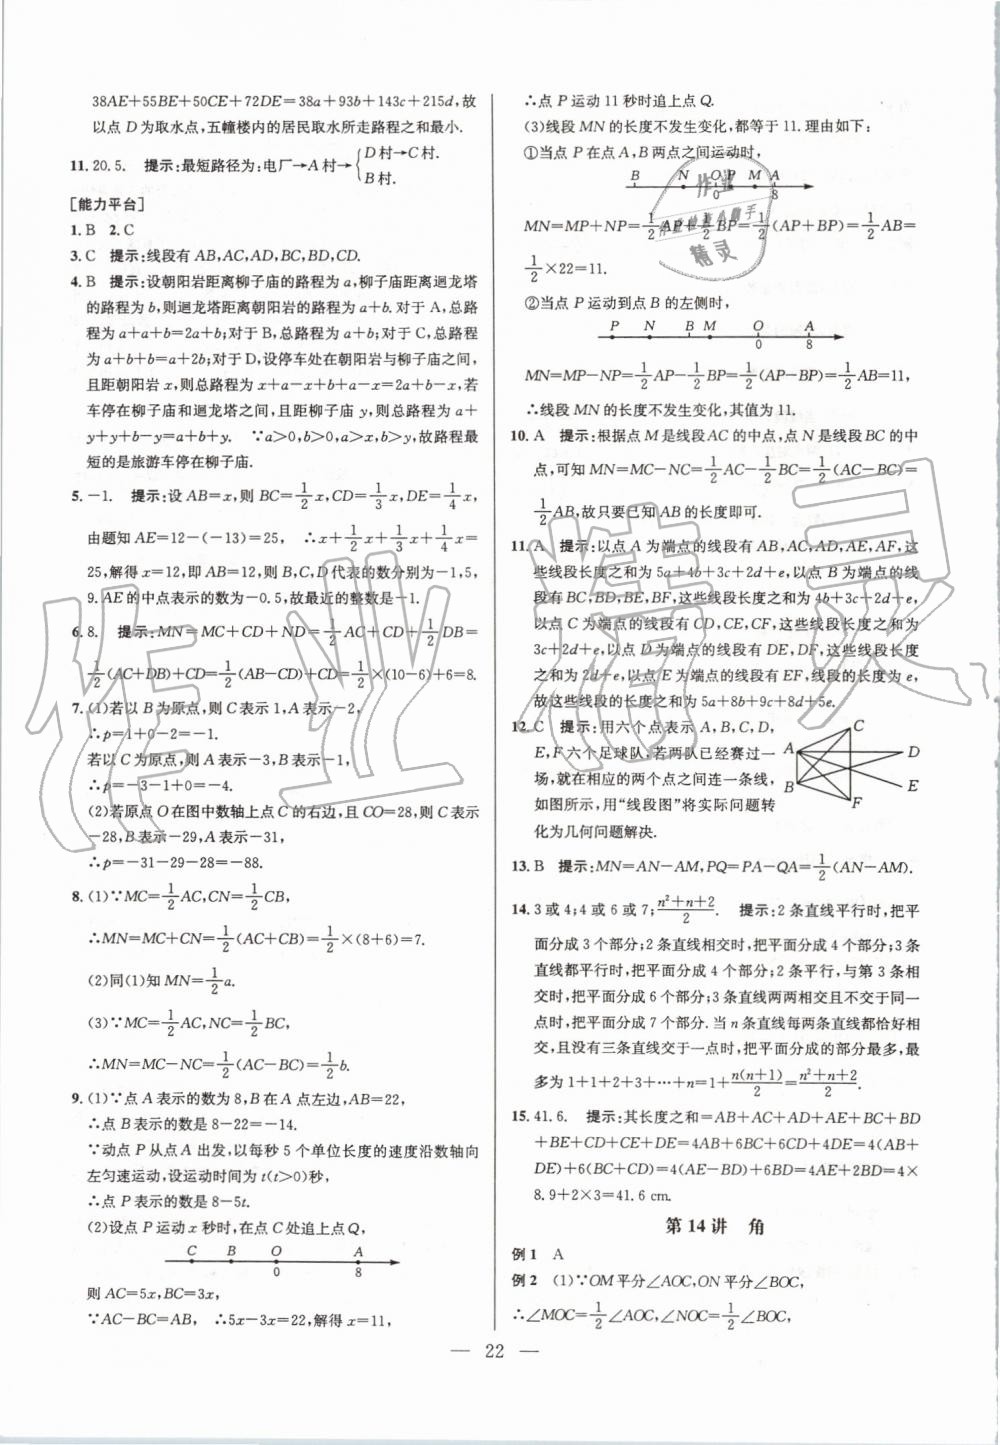 38AE+55BE+50CE+72DE=38a+93b+143c+215d,故
以点 D 为取水点,五幢楼内的居民取水所走路程之和最小.
11. 20.5. 提示:最短路径为:电厂→A村→{D村→C村.
B村.
[能力平台]
1. B 2. C
3. C 提示:线段有 AB,AC,AD,BC,BD,CD.
4. B 提示:设朝阳岩距离柳子庙的路程为 a,柳子庙距离迴龙塔
的路程为 b,则迴龙塔距离朝阳岩的路程为 a+b. 对于 A,总路
程为 a+a+b=2a+b;对于 B,总路程为 a+b;对于 C,总路程
为 a+b+b=a+2b;对于 D,设停车处在朝阳岩与柳子庙之间,
且距朝阳岩 x,则总路程为 x+a-x+b+a-x=2a+b-x,若
车停在柳子庙和迴龙塔之间,且距柳子庙 y,则总路程为 a+
y+y+b-y=a+b+y. ∵a>0,b>0,a>x,b>y,故路程最
短的是旅游车停在柳子庙.
5. -1. 提示:设 AB=x,则 BC=1/2x,CD=1/3x,DE=1/4x,
由题知 AE=12-(-13)=25, ∴x+1/2x+1/3x+1/4x=
25,解得 x=12,即 AB=12,则 B,C,D 代表的数分别为-1,5,
9. AE 的中点表示的数为-0.5,故最近的整数是-1.
6. 8. 提示:MN=MC+CD+ND=1/2AC+CD+1/2DB=
1/2(AC+DB)+CD=1/2(AB-CD)+CD=1/2×(10-6)+6=8.
7. (1)若以 B 为原点,则 C 表示 1,A 表示-2,
∴p=1+0-2=-1.
若以 C 为原点,则 A 表示-3,B 表示-1,
∴p=-3-1+0=-4.
(2)若原点 O 在图中数轴上点 C 的右边,且 CO=28,则 C 表示
-28,B 表示-29,A 表示-31,
∴p=-31-29-28=-88.
8. (1)∵MC=1/2AC,CN=1/2CB,
∴MN=MC+CN=1/2(AC+CB)=1/2×(8+6)=7.
(2)同(1)知 MN=1/2a.
(3)∵MC=1/2AC,NC=1/2BC,
∴MN=MC-NC=1/2(AC-BC)=1/2b.
9. (1)∵点 A 表示的数为 8,B 在 A 点左边,AB=22,
∴点 B 表示的数是 8-22=-14.
∵动点 P 从点 A 出发,以每秒 5 个单位长度的速度沿数轴向
左匀速运动,设运动时间为 t(t>0)秒,
∴点 P 表示的数是 8-5t.
(2)设点 P 运动 x 秒时,在点 C 处追上点 Q,
C B O A
0 8
则 AC=5x,BC=3x,
∵AC-BC=AB, ∴5x-3x=22,解得 x=11,
∴点 P 运动 11 秒时追上点 Q.
(3)线段 MN 的长度不发生变化,都等于 11. 理由如下:
①当点 P 在点 A,B 两点之间运动时,
B N O P M A
0 8
MN=MP+NP=1/2AP+1/2BP=1/2(AP+BP)=1/2AB=
1/2×22=11.
②当点 P 运动到点 B 的左侧时,
P N B M O A
0 8
MN=MP-NP=1/2AP-1/2BP=1/2(AP-BP)=1/2AB=11,
∴线段 MN 的长度不发生变化,其值为 11.
10. A 提示:根据点 M 是线段 AC 的中点,点 N 是线段 BC 的中
点,可知 MN=MC-NC=1/2AC-1/2BC=1/2(AC-BC)=
1/2AB,故只要已知 AB 的长度即可.
11. A 提示:以点 A 为端点的线段有 AB,AC,AD,AE,AF,这
些线段长度之和为 5a+4b+3c+2d+e,以点 B 为端点的线
段有 BC,BD,BE,BF,这些线段长度之和为 4b+3c+2d+e,
以点 C 为端点的线段有 CD,CE,CF,这些线段长度之和为
3c+2d+e,以点 D 为端点的线段有 DE,DF,这些线段长度
之和为 2d+e,以点 E 为端点的线段有 EF,线段的长度为 e,
故这些线段的长度之和为 5a+8b+9c+8d+5e.
12. C 提示:用六个点表示 A,B,C,D,
E,F 六个足球队,若两队已经赛过一
场,就在相应的两个点之间连一条线,
如图所示,用“线段图”将实际问题转
化为几何问题解决.
C
A D
B E
F
13. B 提示:MN=AN-AM,PQ=PA-QA=1/2(AN-AM).
14. 3 或 4;4 或 6 或 7;(n²+n+2)/2. 提示:2 条直线平行时,把平
面分成 3 个部分;2 条直线相交时,把平面分成 4 个部分;3 条
直线都平行时,把平面分成 4 个部分;2 条平行,与第 3 条相
交时,把平面分成 6 个部分;3 条直线两两相交且不交于同一
点时,把平面分成 7 个部分. 当 n 条直线每两条都恰好相
交,且没有三条直线交于一点时,把平面分成的部分最多,最
多为 1+1+2+3+…+n=1+n(n+1)/2=(n²+n+2)/2.
15. 41.6. 提示:其长度之和=AB+AC+AD+AE+BC+BD
+BE+CD+CE+DE=4AB+6BC+6CD+4DE=4(AB+
DE)+6(BC+CD)=4(AE-BD)+6BD=4AE+2BD=4×
8.9+2×3=41.6 cm.
第 14 讲 角
例 1 A
例 2 (1)∵OM 平分∠AOC,ON 平分∠BOC,
∴∠MOC=1/2∠AOC,∠NOC=1/2∠BOC,
— 22 —
作业精灵